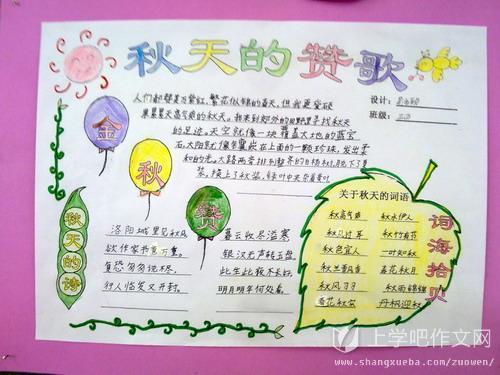 秋天的赞歌
设计:
班级:
人们都赞美万紫红,繁花似锦的春天,但我更爱硕
果累累天高气爽的秋天。我来到郊外的田野里寻找秋天
的足迹。天空就像一块覆盖大地的蓝宝
石,太阳就像镶嵌在上面的一颗珍珠,发出柔
和的光。大路两旁排列整齐的白杨树儿脱下了夏
装,换上了秋装,绿叶中夹杂着黄叶
金
秋
赞
秋天的诗
洛阳城里见秋风
欲作家书意万重。
复恐匆匆说不尽,
行人临发又开封。
暮云收尽溢清寒
银汉无声转玉盘
此生此夜不长好,
明月明年何处看。
关于秋天的词语
秋高气爽 秋水伊人
秋风过耳 秋竹有节
秋色宜人 一叶知秋
秋兰飘香 春花秋月
秋风习习 秋雨绵绵
春花秋实 丹枫迎秋
词海拾贝
上学吧作文网
www.shangxueba.com/zuowen/